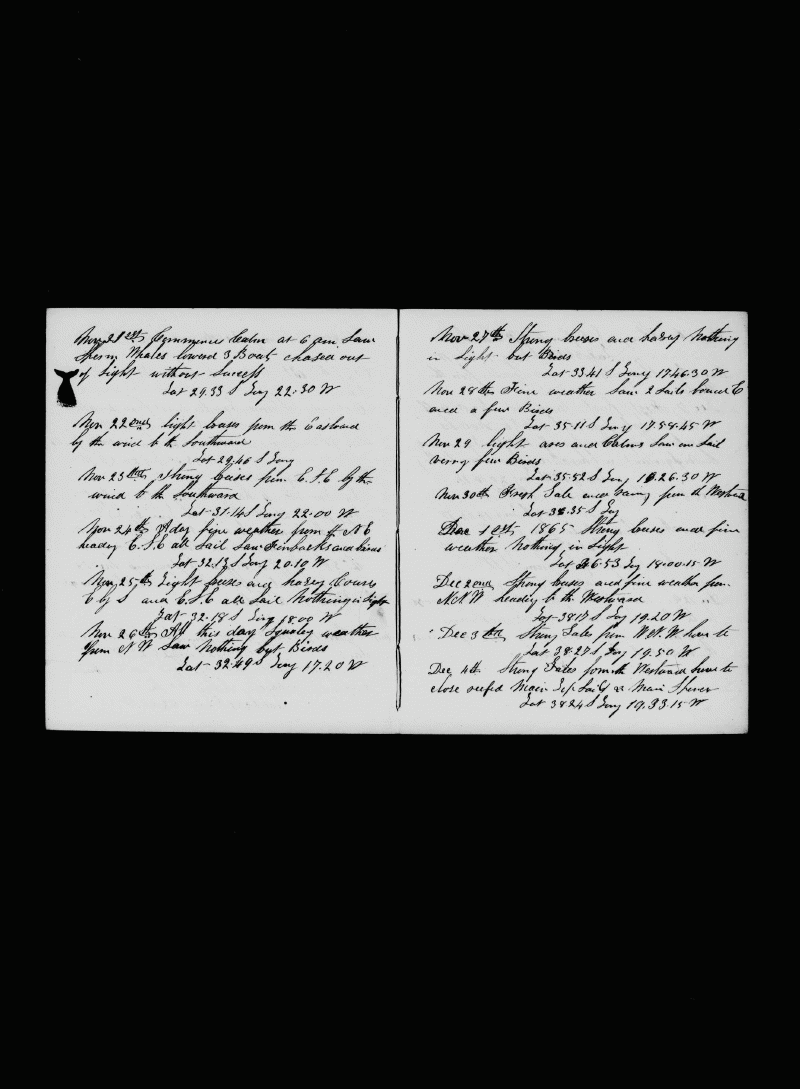 Nov 21st Commences Calm at 6 am Saw
Sperm Whales lowered 3 Boats chased out
of Sight without Success
Lat 29.33 S Long 22.30 W
Nov 22ond light breses from the Eastward
by the wind to the Southward
Lat 29.46 S Long
Nov 23 Strong breses from E.S.E by the
wind to the Southward
Lat 31.14 S Long 22.00 W
Nov 24th A day fine weather from N E
heading E.S.E all Sail Saw Finbacks and birds
Lat 32.13 S Long 20.10 W
Nov 25th Light breses and hazey Courses
E by S and E.S.E all Sail Nothing in Sight
Lat 32.18 S Long 18.00 W
Nov 26th All this day Squaley weather
from N W Saw Nothing but Birds
Lat 32.49 S Long 17.20 W
Nov 27th Strong breses and hazey Nothing
in Sight but Birds
Lat 33.41 S Long 17.46.30 W
Nov 28th Fine weather Saw 2 Sails bound E
and a few Birds
Lat 35.11 S Long 17.58.45 W
Nov 29 light aires and Calms Saw one Sail
verry few Birds
Lat 35.52 S Long 18.26.30 W
Nov 30th Fresh Gale and from the Westward
Lat 38.35 S Long
Dec 1st 1865 Strong breses and fine
weather Nothing in Sight
Lat 36.53 Long 18.00.15 W
Dec 2ond Strong breses and fine weather from
N.N.W heading to the Westward
Lat 38.17 S Long 19.20 W
Dec 3 Strong Gale from W.N.W hove to
Lat 38.27 S Long 19.50 W
Dec 4th Strong Gales from the Westward hove to
close reefed Main Top Sail & Main Spencer
Lat 38.24 S Long 19.33.15 W